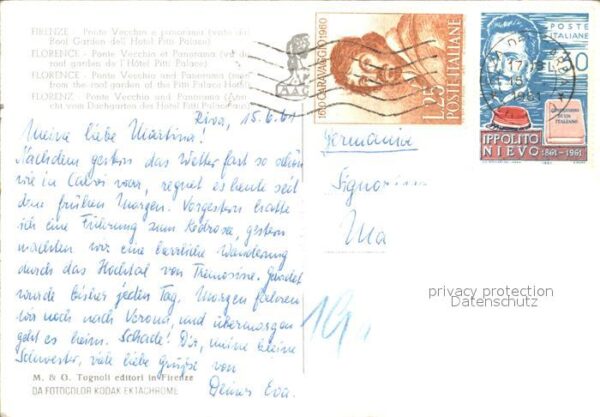 FIRENZE - Ponte Vecchio e panorama (vista dal
Roof Garden dell Hotel Pitti Palace)
FLORENCE - Ponte Vecchio et Panorama (vu du
root garden de l'Hôtel Pitti Palace)
FLORENCE - Ponte Vecchio and Panorama
from the root garden of the Pitti Palace Hotel
FLORENZ - Ponte Vecchio und Panorama
cht vom Dachgarten des Hotel Pitti Palace)
1600 CARAVAGGIO 1960
L.25
POSTE ITALIANE
POSTE
ITALIANE
IPPOLITO
NIEVO 1861-1961
Riva, 15.6.61
Meine liebe Martina!
Nachdem gestern das Wetter fast so schön
wie in war, regnet es heute seit
dem frühen Morgen. Vorgestern hatte
ich eine Führung zum, gestern
machten wir eine herrliche Wanderung
durch das Hochtal von Tremosine. Gebadet
wurde bisher jeden Tag. Morgen fahren
wir noch nach Verona, und übermorgen
geht es heim. Schade! Dir, meine kleine
Schwester, viele liebe Grüsse von
Deiner Eva.
Germania
Signorina
19
privacy protection
Datenschutz
M. & O. Tognoli editori in Firenze
DA FOTOCOLOR KODAK EKTACHROME